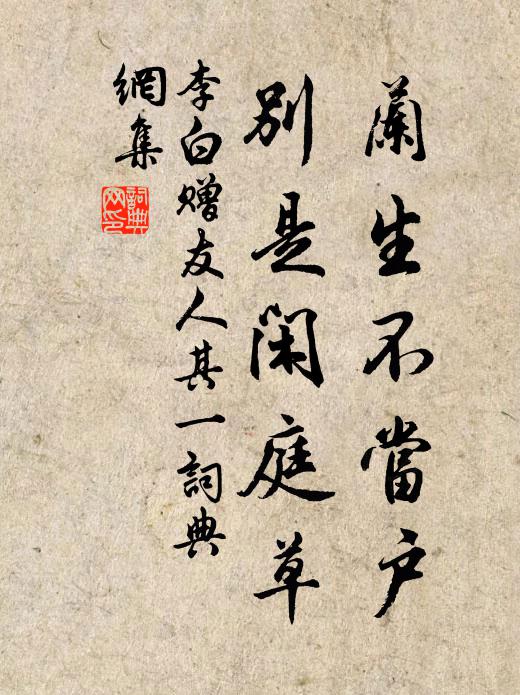 蘭生不當户
別是閑庭草
李白赠友人其一詞典
網集
詞典网印